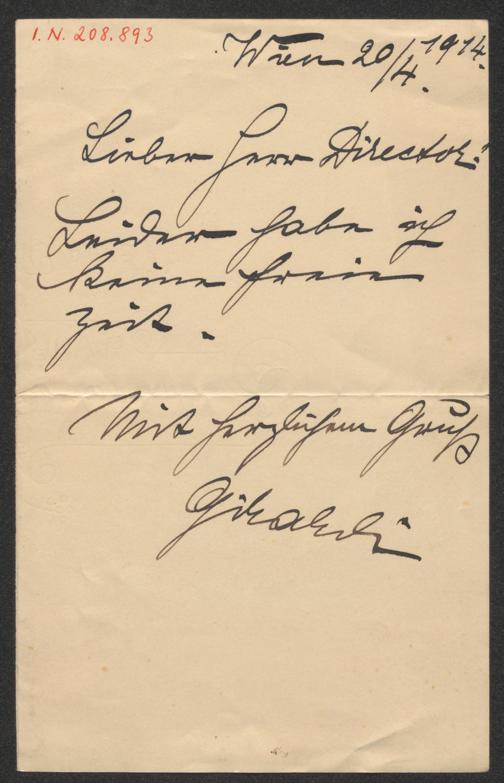 I. N. 208.893
Wien 20/4. 1914.
Lieber Herr Director!
Leider habe ich
keine freie
Zeit.
Mit herzlichem Gruß
Girardi